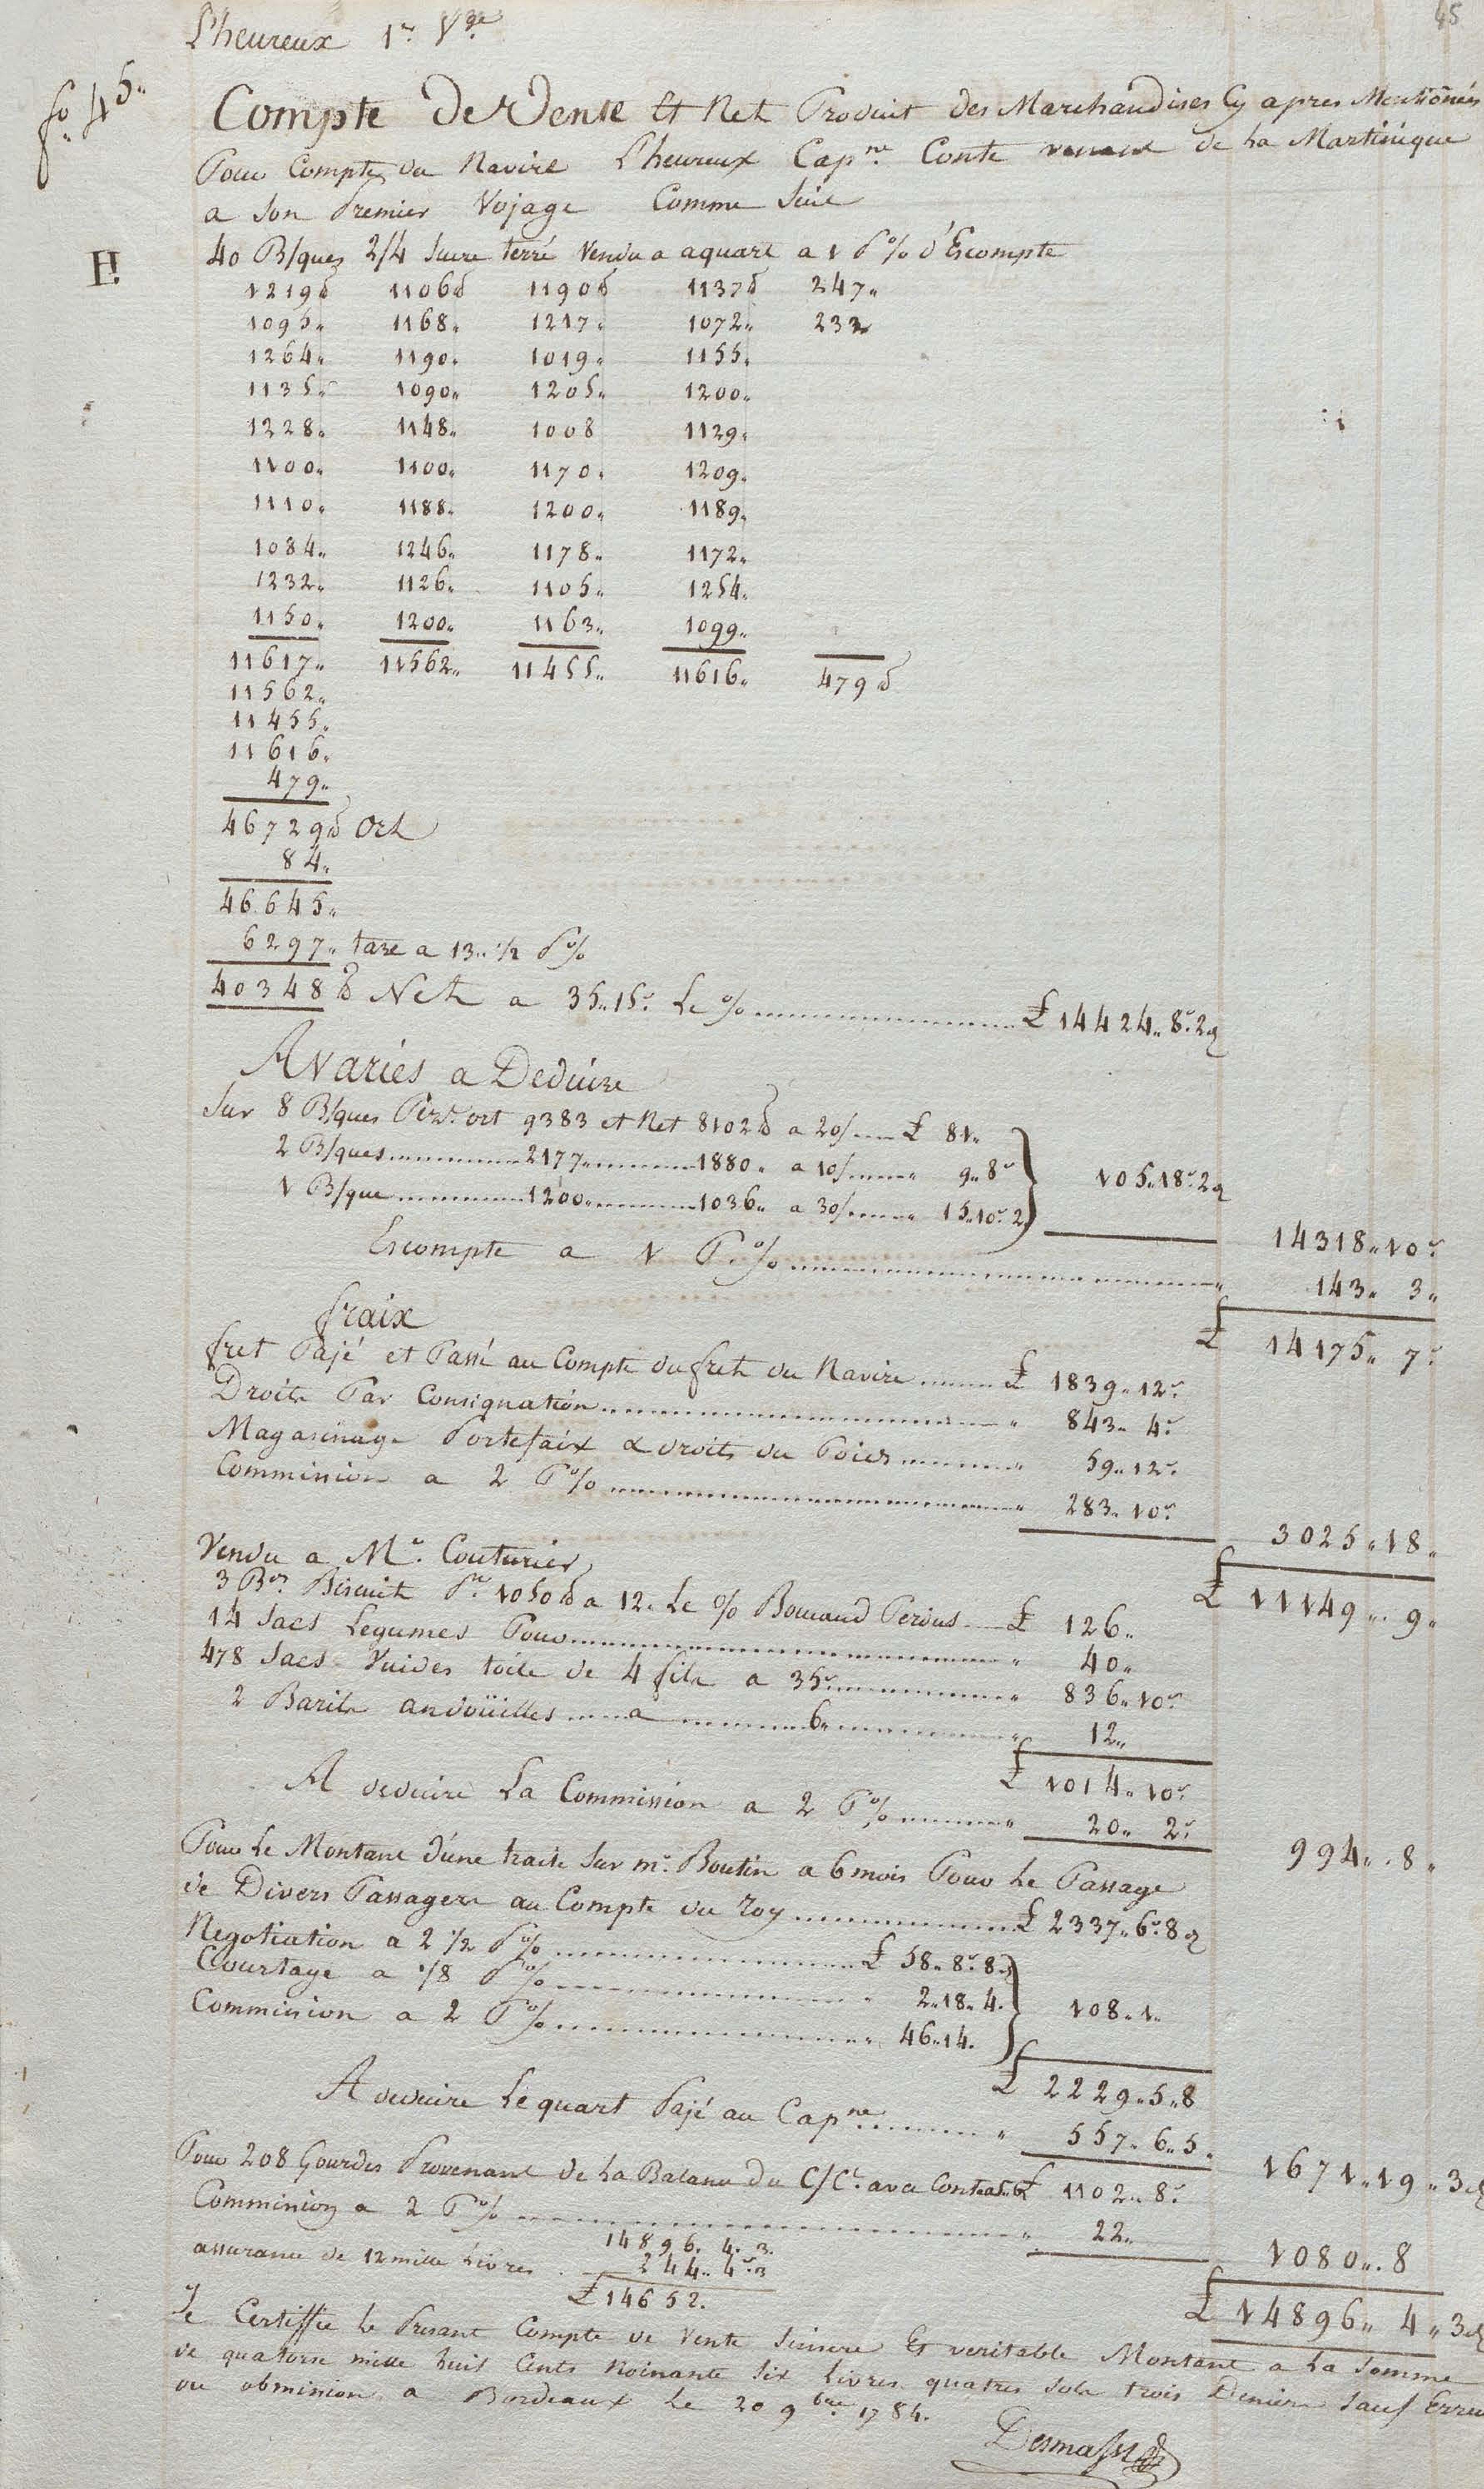 45
L'heureux 1er Vge
fo 45"
Compte De Vente Et Net Produit des Marchandises Cy apres Mentionnés
Pour Compte du Navire L'heureux Capne Conte venant de La Martinique
a Son Premier Vojage Comme Suit
H
40 B/ques 2/4 Sucre terré Vendu a aquart a 1 P% d'Escompte
1219 ℔ 1106 ℔ 1190 ℔ 1137 ℔ 247"
1095" 1168" 1217" 1072" 232"
1264" 1190" 1019" 1155"
1135" 1090" 1205" 1200"
1228" 1148" 1008 1129"
1100" 1100" 1170" 1209"
1110" 1188" 1200" 1189"
1084" 1246" 1178" 1172"
1232" 1126" 1105" 1254"
1150" 1200" 1163" 1099"
11617" 11562" 11455" 11616" 479 ℔
11562"
11455"
11616"
479"
46729 ℔ Ort
84"
46645"
6297" tare a 13" 1/2 P%
40348 ℔ Net a 35" 15s Le % £ 14424" 8s 2d
Avaries a Deduire
Sur 8 B/ques Pezt ort 9383 et Net 8102 ℔ a 20/ £ 81"
2 B/ques 2177" 1880" a 10/ " 9" 8s 105" 18s 2d
1 B/que 1200" 1036" a 30/ " 15" 10s 2
14318" 10s
Escompte a 1 P.% " 143" 3"
£ 14175" 7s
fraix
fret Pajé et Passé au Compte du fret du Navire £ 1839" 12s
Droits Par Consignation " 843" 4s
Magasinage Portefaix & droits du Poids " 59" 12s
Commission a 2 P% " 283" 10s
3025" 18"
£ 11149" 9"
Vendu a Mr. Couturier
3 Bes Biscuit Pt 1050 ℔ a 12" Le % Boucaud Perdus £ 126"
14 Sacs Legumes Pour " 40"
478 Sacs Vuides toile de 4 fils a 35s " 836" 10s
2 Barils andoüilles a 6" " 12"
£ 1014" 10s
A deduire La Commission a 2 P% " 20" 2s
994" 8"
Pour Le Montant d'une traite Sur mr. Boutin a 6 mois Pour Le Passage
de Divers Passagers au Compte du Roy £ 2337" 6s 8d
Negotiation a 2 1/2 P% £ 58" 8s 8d
Courtage a 1/8 P% " 2" 18" 4" 108" 1"
Commission a 2 P% " 46" 14"
£ 2229" 5" 8
A deduire Le quart Pajé au Capne " 557" 6" 5"
1671" 19" 3d
Pour 208 Gourdes Provenant de La Balance du C/Ct. avec Conte £ 1102" 8s
Commission a 2 P% " 22"
1080" 8
14896. 4. 3.
assurance de 12 mille Livres 244" 4s 3
£ 14652.
£ 14896" 4" 3d
Je Certiffie Le Presant Compte de Vente Sincere Et veritable Montant a La Somme
de quatorze mille huit Cents Noinante Six Livres quatres Sols trois Deniers Sauf Erreur
ou obmission a Bordeaux Le 20 9bre 1784.